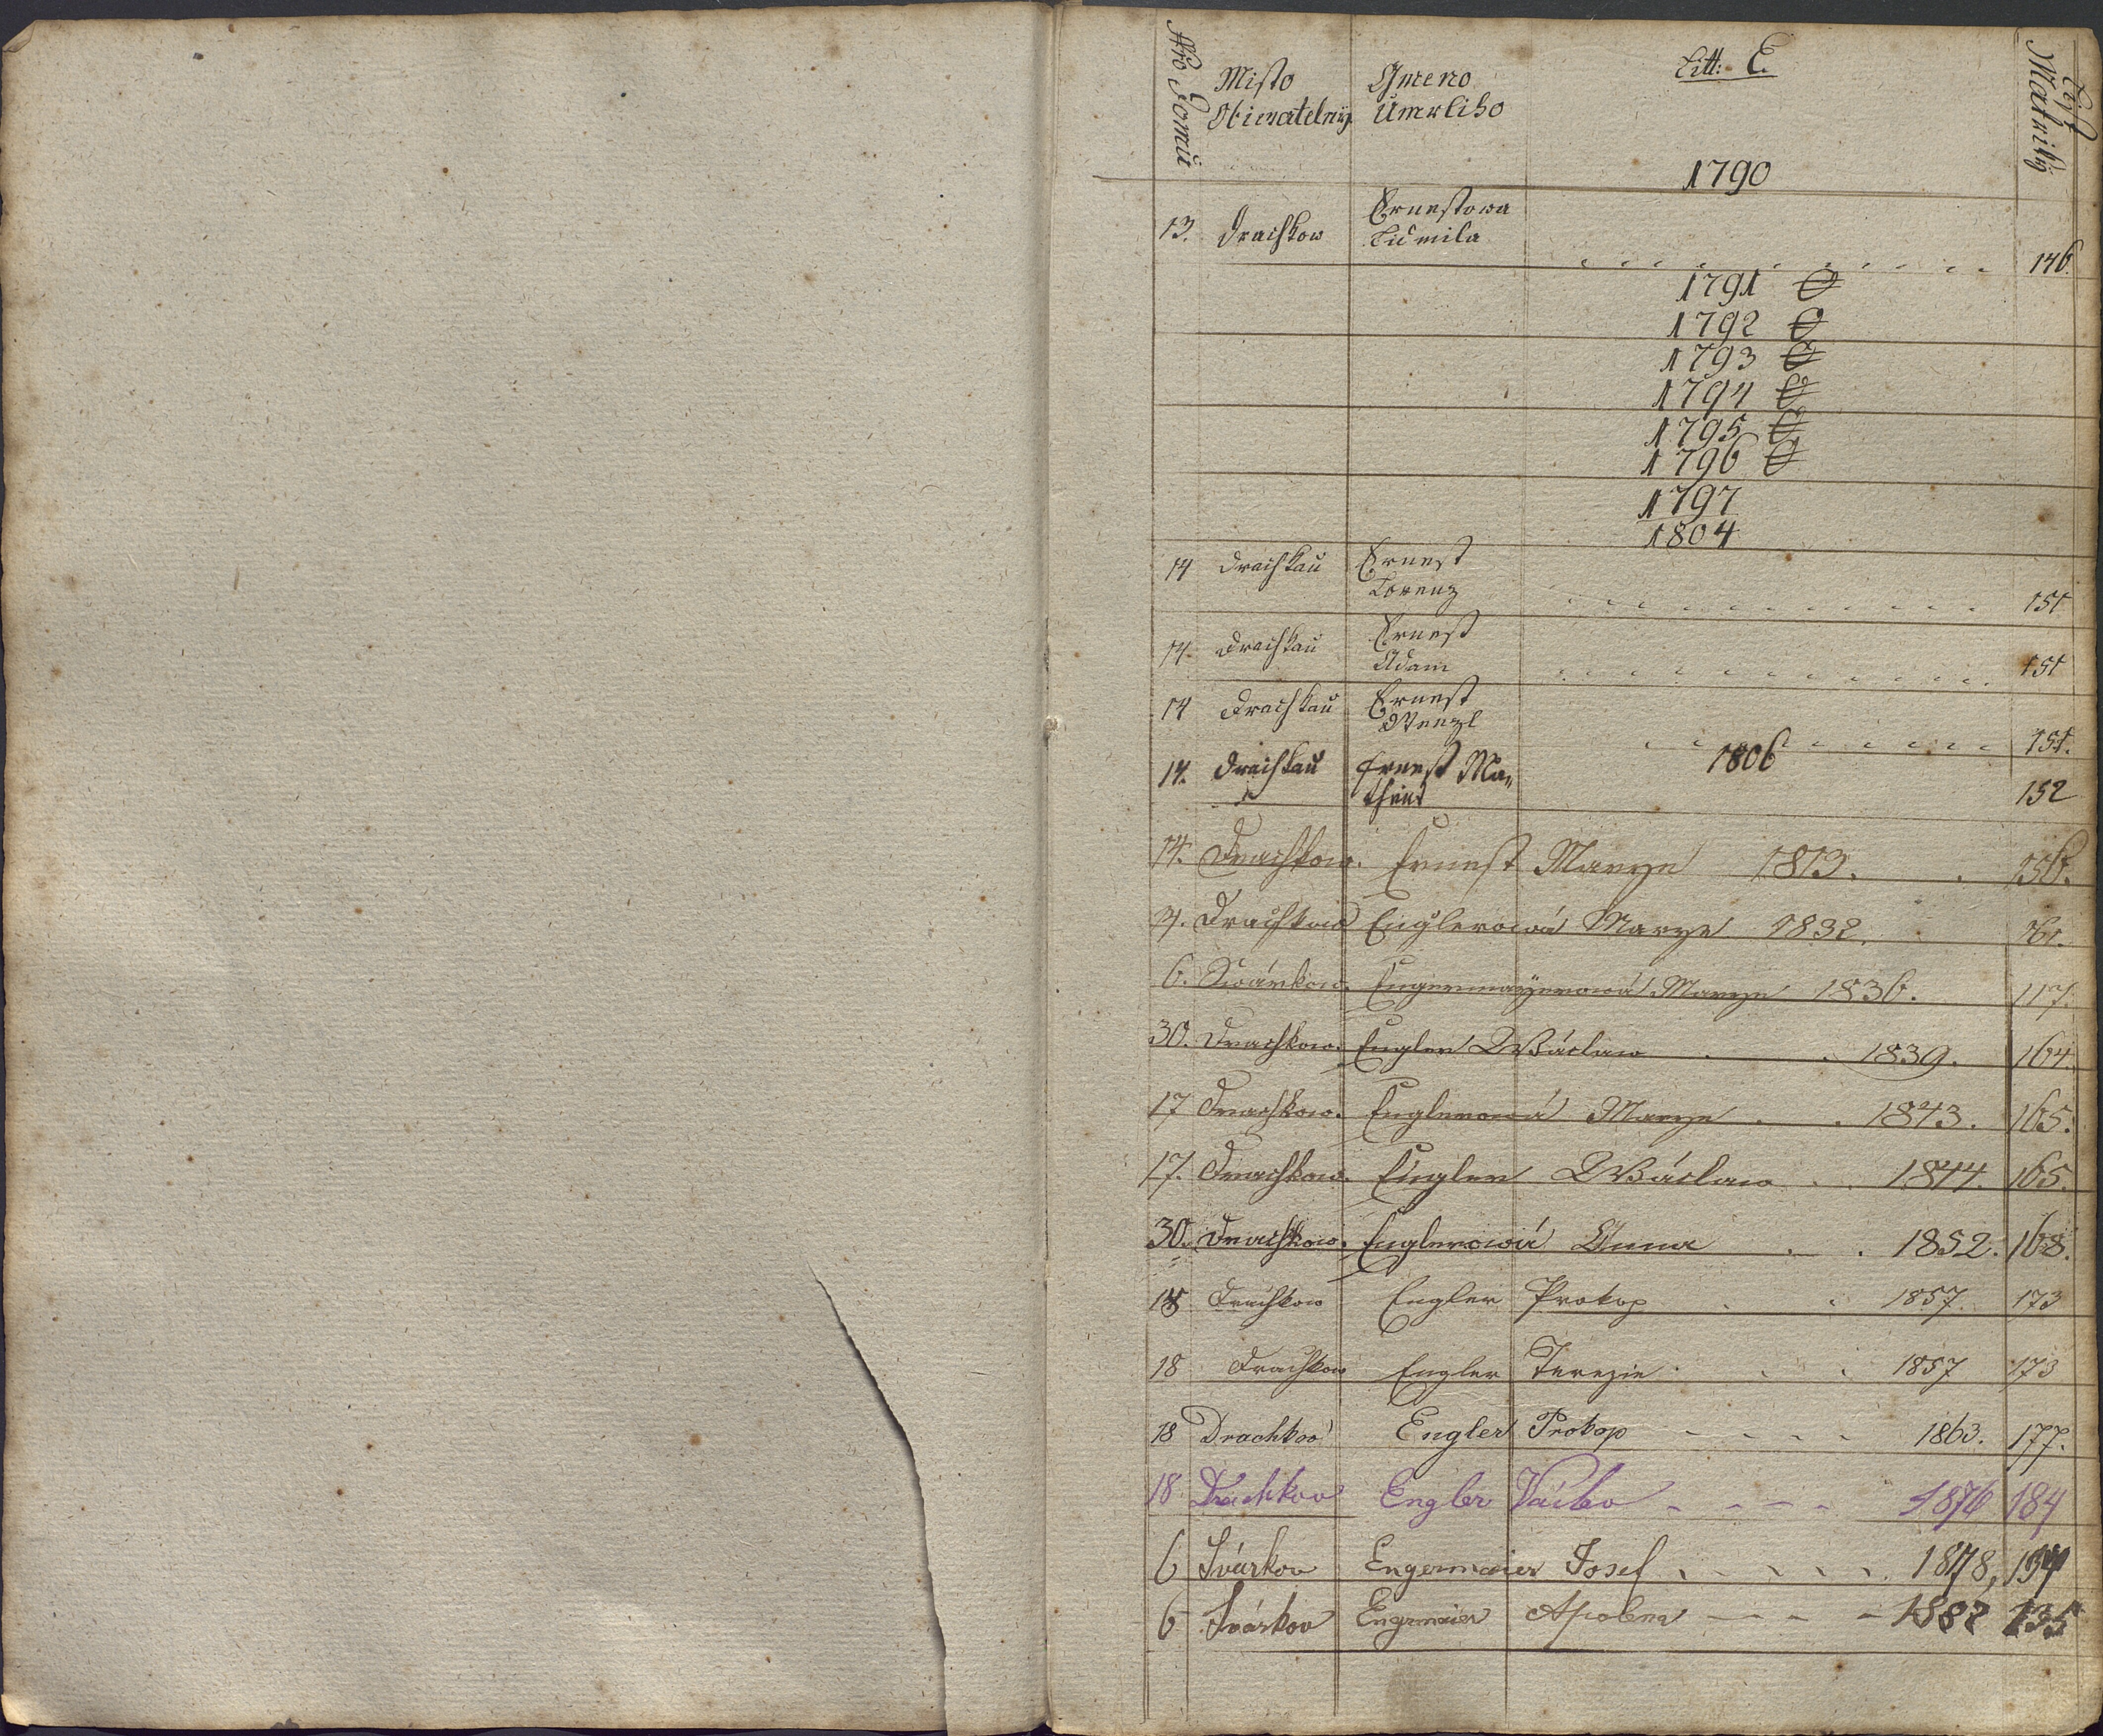 Nro Domu
Misto Obiwatelnÿ
Gmeno Umrliho
Litt: E.
List Matriky
1790
13. Drachkow Ernestowa Lidmila 146.
1791 O
1792 O
1793 O
1794 O
1795 O
1796 O
1797
1804
14 Drachkau Ernest Lorenz 151
14. Drachkau Ernest Adam 151
14 Drachkau Ernest Wenzl 151.
1806
14. Drachkau Ernest Ma„ 152
theus
14. Drachkow. Ernest Marye 1813. 156.
Drachkow Englerowá Marye 1832.
6. Swárkow. Engermayerowá Marye 1836. 117.
30. Drachkow. Engler Wáclaw 1839. 164.
17 Drachkow. Englerowá Marye 1843. 165.
17. Drachkow. Engler Wáclaw 1844. 165.
30. Drachkow. Englerowá Anna 1852. 168.
Drachkow Engler Prokop 1857. 173
18 Drachkow Engler Terezie 1857 173
18 Drachkov Engler Prokop 1863. 177.
18 Drachkov Engler Václav 1876 184
6 Svárkov Engermaier Josef 1878, 134
6 Svárkov Engrmaier Apolena 1882 135